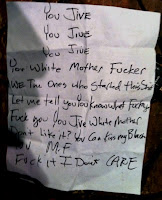 You JIVE
You JIVE
You JIVE
You White Mother Fucker
WE The Ones who Started this
Let me tell you You know what
Fuck you You JIVE White Mother
Dont Like it? You Can Kiss my Black
M.F.
Fuck iT I DonT CARE